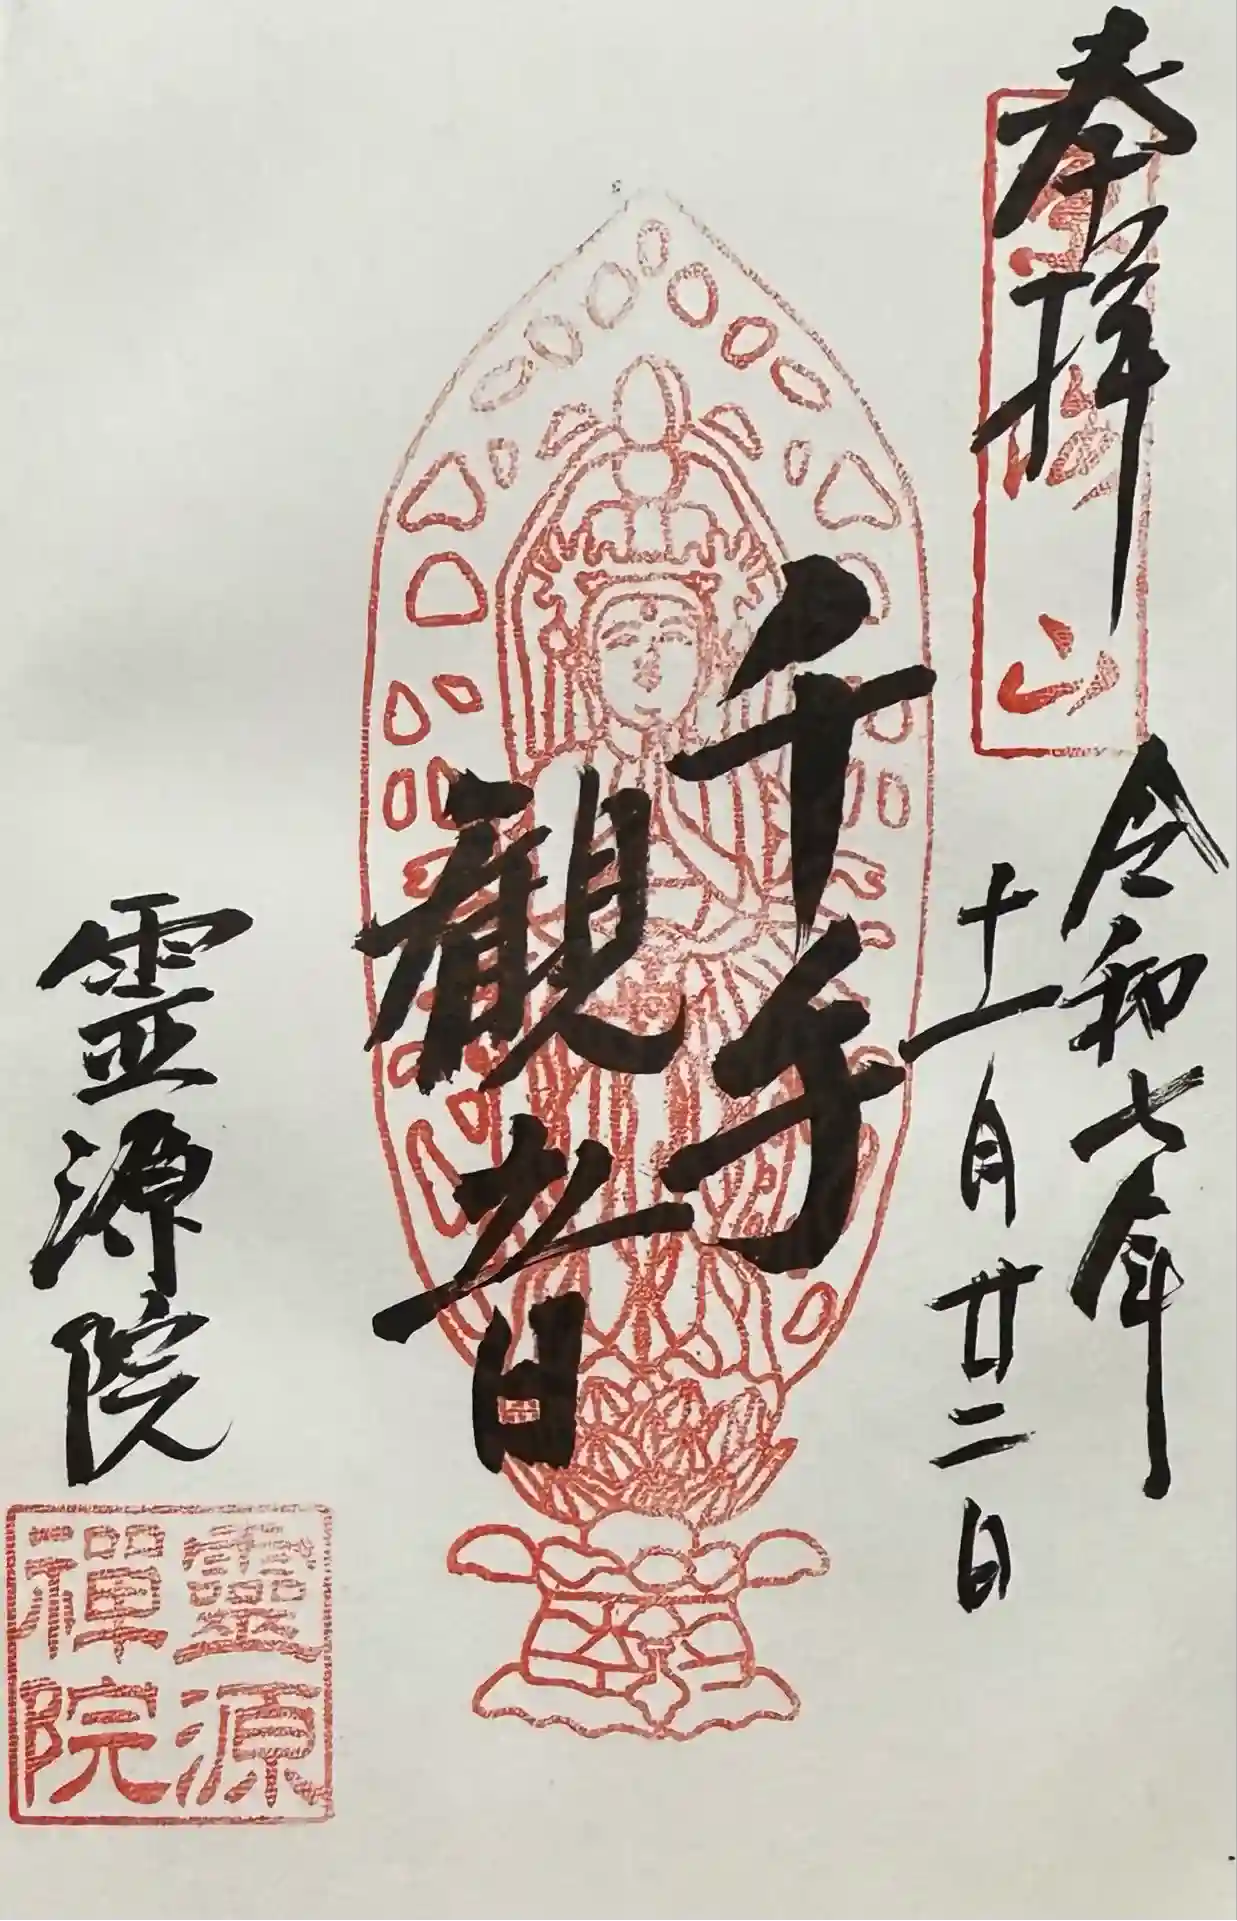 奉拝
山
令和七年
十一月廿二日
千手
観音
霊源院
靈源
禪院